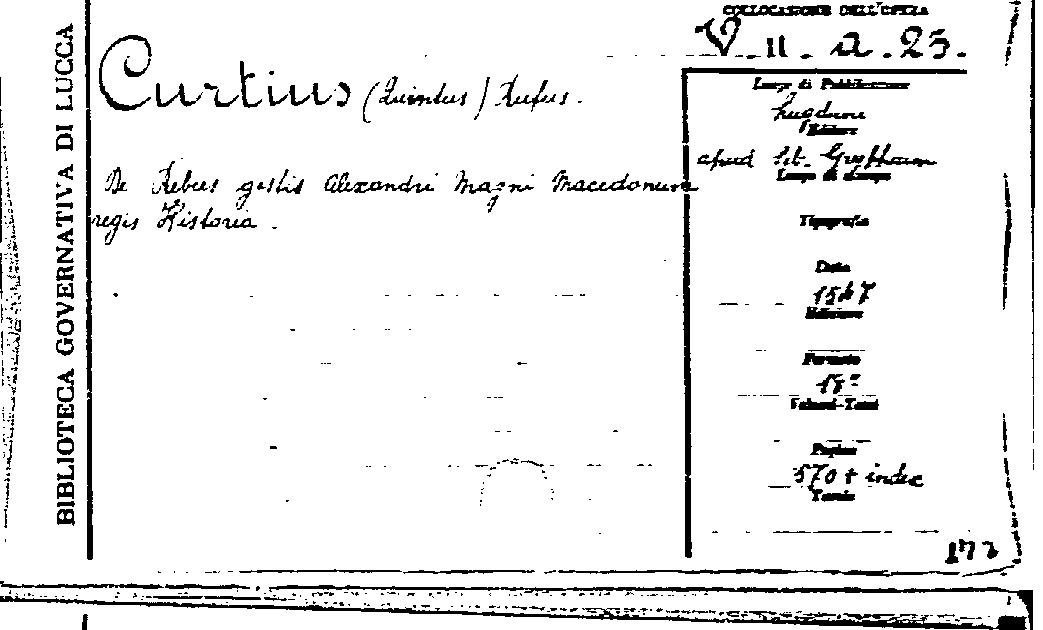 BIBLIOTECA GOVERNATIVA DI LUCCA
COLLOCAZIONE DELL'OPERA
V. II. a. 25.
Curtius (Quintus) Rufus.
De Rebus gestis Alexandri Magni Macedonum
regis Historia.
Luogo di Pubblicazione
Lugduni
Editore
apud Seb. Gryphium
Luogo di stampa
Tipografia
Data
1547
Edizione
Formato
Volumi-Tomi
Pagine
570 + index
Tavole